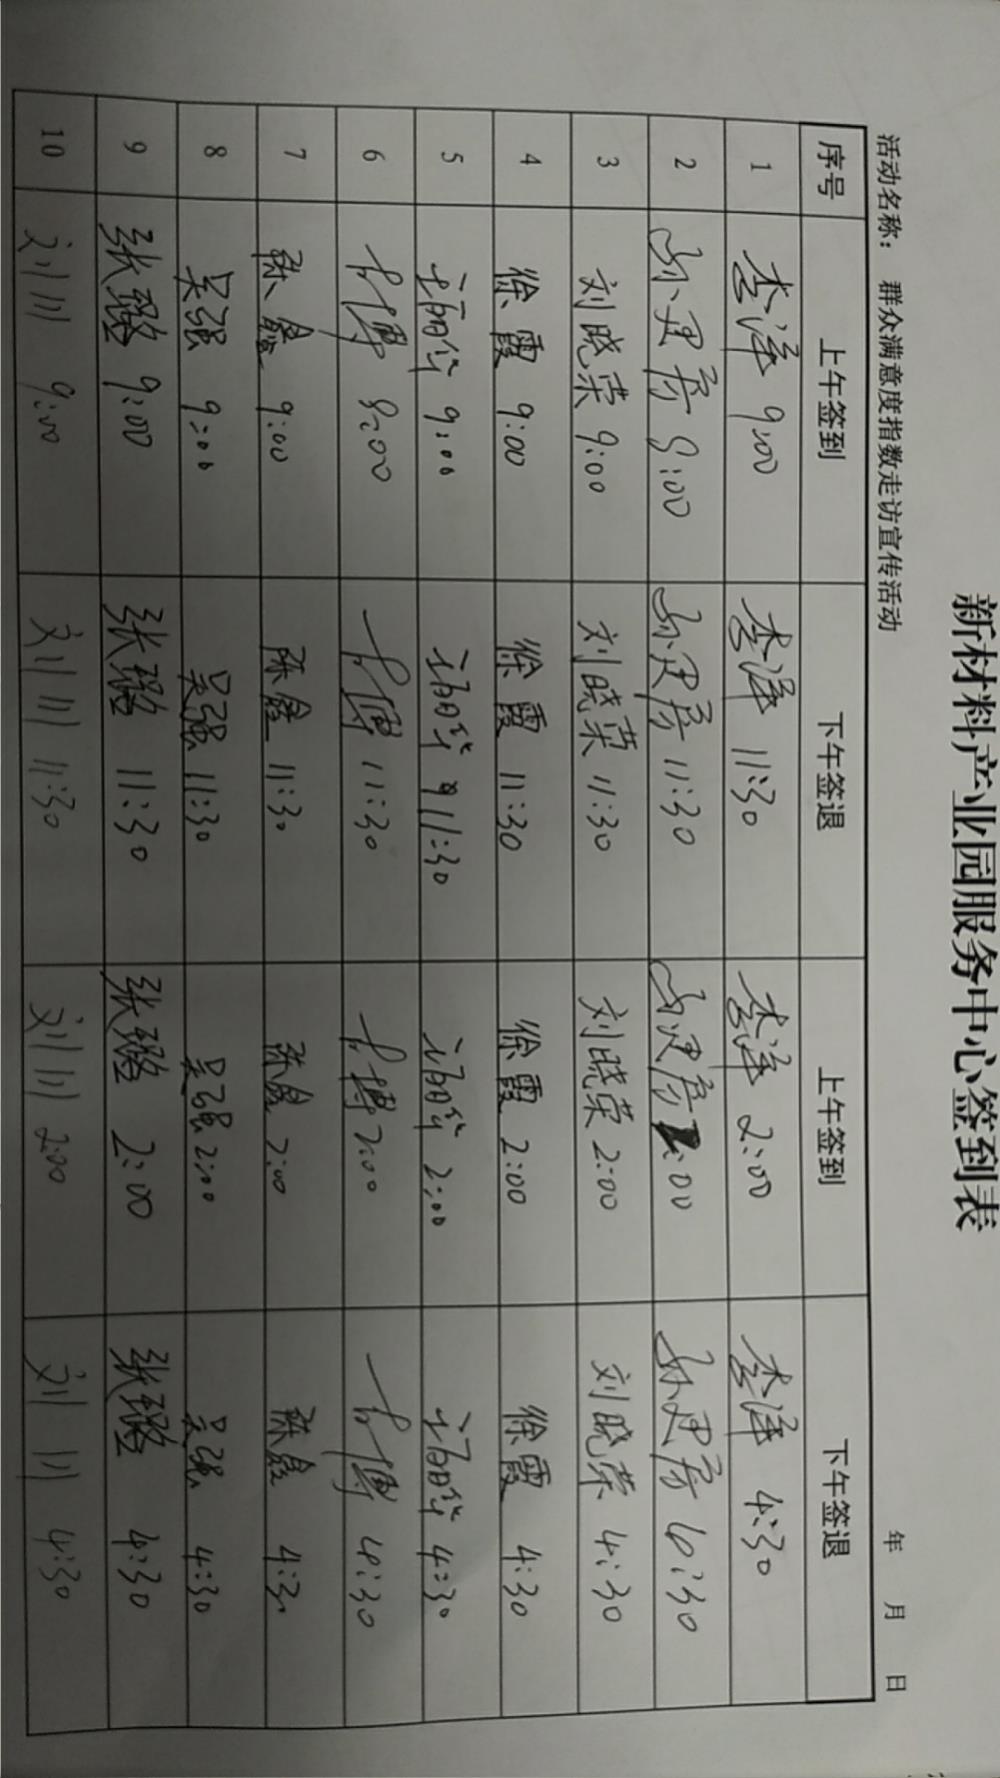 新材料产业园服务中心签到表
活动名称: 群众满意度指数走访宣传活动 年 月 日
序号 上午签到 下午签退 上午签到 下午签退
1 李泽 9:00 李泽 11:30 李泽 2:00 李泽 4:30
2 9:00 11:30 2:00 4:30
3 刘晓荣 9:00 刘晓荣 11:30 刘晓荣 2:00 刘晓荣 4:30
4 徐霞 9:00 徐霞 11:30 徐霞 2:00 徐霞 4:30
5 9:00 11:30 2:00 4:30
6 9:00 11:30 2:00 4:30
7 陈 9:00 陈 11:30 陈 2:00 陈 4:30
8 吴强 9:00 吴强 11:30 吴强 2:00 吴强 4:30
9 张璐 9:00 张璐 11:30 张璐 2:00 张璐 4:30
10 刘川 9:00 刘川 11:30 刘川 2:00 刘川 4:30